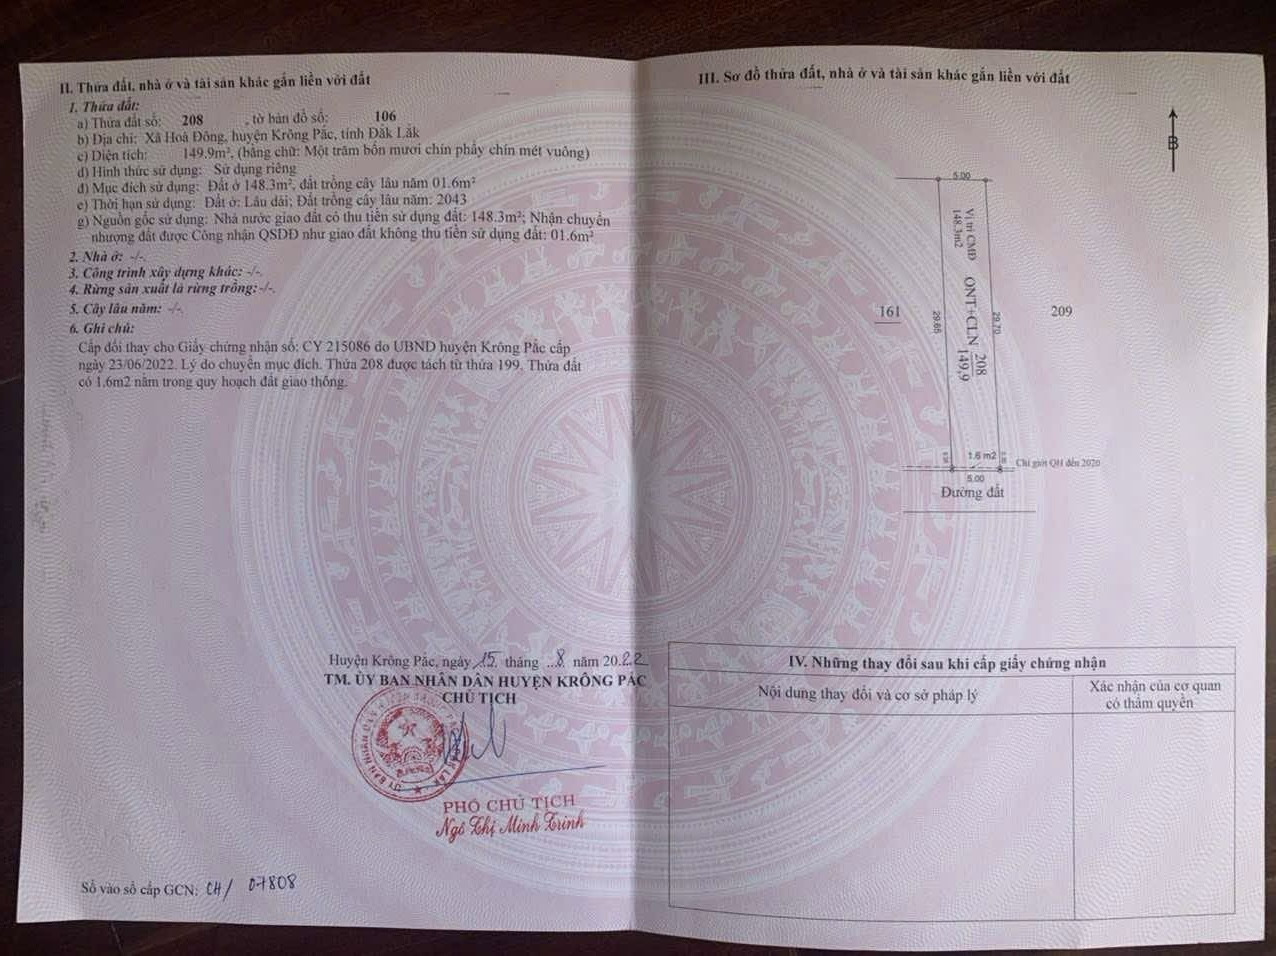 II. Thửa đất, nhà ở và tài sản khác gắn liền với đất
1. Thửa đất:
a) Thửa đất số: 208 , tờ bản đồ số: 106
b) Địa chỉ: Xã Hoà Đông, huyện Krông Pắc, tỉnh Đắk Lắk
c) Diện tích: 149.9m², (bằng chữ: Một trăm bốn mươi chín phẩy chín mét vuông)
d) Hình thức sử dụng: Sử dụng riêng
đ) Mục đích sử dụng: Đất ở 148.3m², đất trồng cây lâu năm 01.6m²
e) Thời hạn sử dụng: Đất ở: Lâu dài; Đất trồng cây lâu năm: 2043
g) Nguồn gốc sử dụng: Nhà nước giao đất có thu tiền sử dụng đất: 148.3m²; Nhận chuyển
nhượng đất được Công nhận QSDĐ như giao đất không thu tiền sử dụng đất: 01.6m²
2. Nhà ở: -/-.
3. Công trình xây dựng khác: -/-.
4. Rừng sản xuất là rừng trồng: -/-.
5. Cây lâu năm: -/-.
6. Ghi chú:
Cấp đổi thay cho Giấy chứng nhận số: CY 215086 do UBND huyện Krông Pắc cấp
ngày 23/06/2022. Lý do chuyển mục đích. Thửa 208 được tách từ thửa 199. Thửa đất
có 1,6m2 nằm trong quy hoạch đất giao thông.
Huyện Krông Pắc, ngày 15 tháng 8 năm 2022
TM. ỦY BAN NHÂN DÂN HUYỆN KRÔNG PẮC
CHỦ TỊCH
PHÓ CHỦ TỊCH
Ngô Thị Minh Trinh
Số vào sổ cấp GCN: CH/ 07808
III. Sơ đồ thửa đất, nhà ở và tài sản khác gắn liền với đất
B
5.00
Vị trí CMĐ
148.3m2
ONT+CLN
208
149,9
29.65
29.70
161
209
1.6 m2
Chỉ giới QH đến 2020
5.00
Đường đất
IV. Những thay đổi sau khi cấp giấy chứng nhận
Nội dung thay đổi và cơ sở pháp lý
Xác nhận của cơ quan
có thẩm quyền